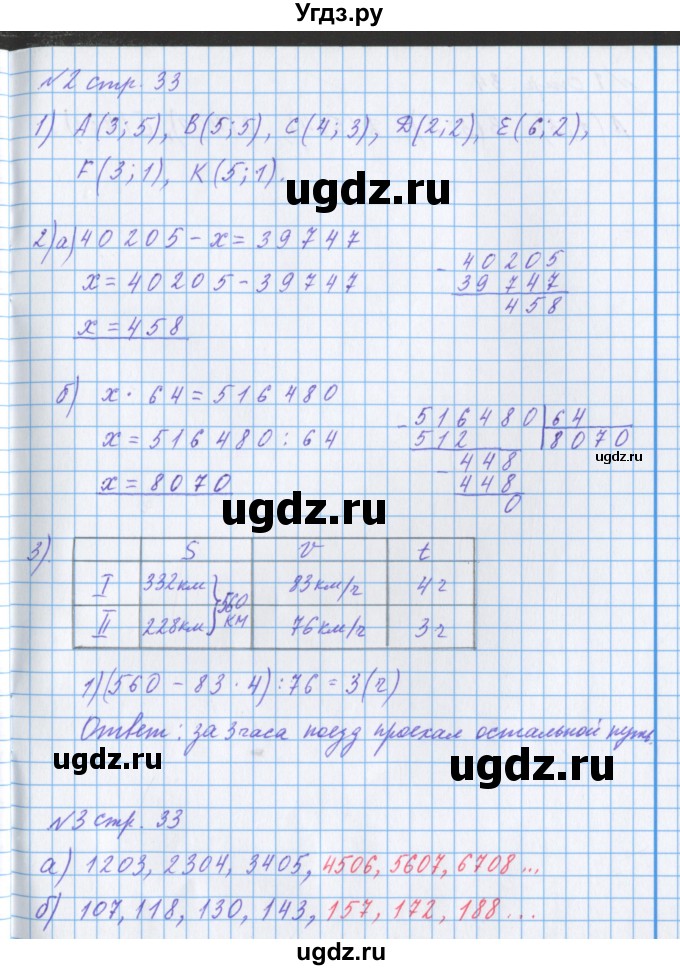 Угдз.ру
№2 стр. 33
1) A(3;5), B(5;5), C(4;3), D(2;2), E(6;2),
F(3;1), K(5;1).
ugdz.ru
2) а) 40205 - x = 39747
x = 40205 - 39747
x = 458
- 40205
39747
458
б) x · 64 = 516480
x = 516480 : 64
x = 8070
- 516480 | 64
512 | 8070
- 448
448
0
ugdz.ru
ugdz.ru
3). S v t
I 332км 83км/ч 4ч
} 560 км
II 228км 76км/ч 3ч
1) (560 - 83 · 4) : 76 = 3(ч)
Ответ: за 3 часа поезд проехал остальной путь.
ugdz.ru
ugdz.ru
№3 стр. 33
ugdz.ru
а) 1203, 2304, 3405, 4506, 5607, 6708...
б) 107, 118, 130, 143, 157, 172, 188...
ugdz.ru
ugdz.ru